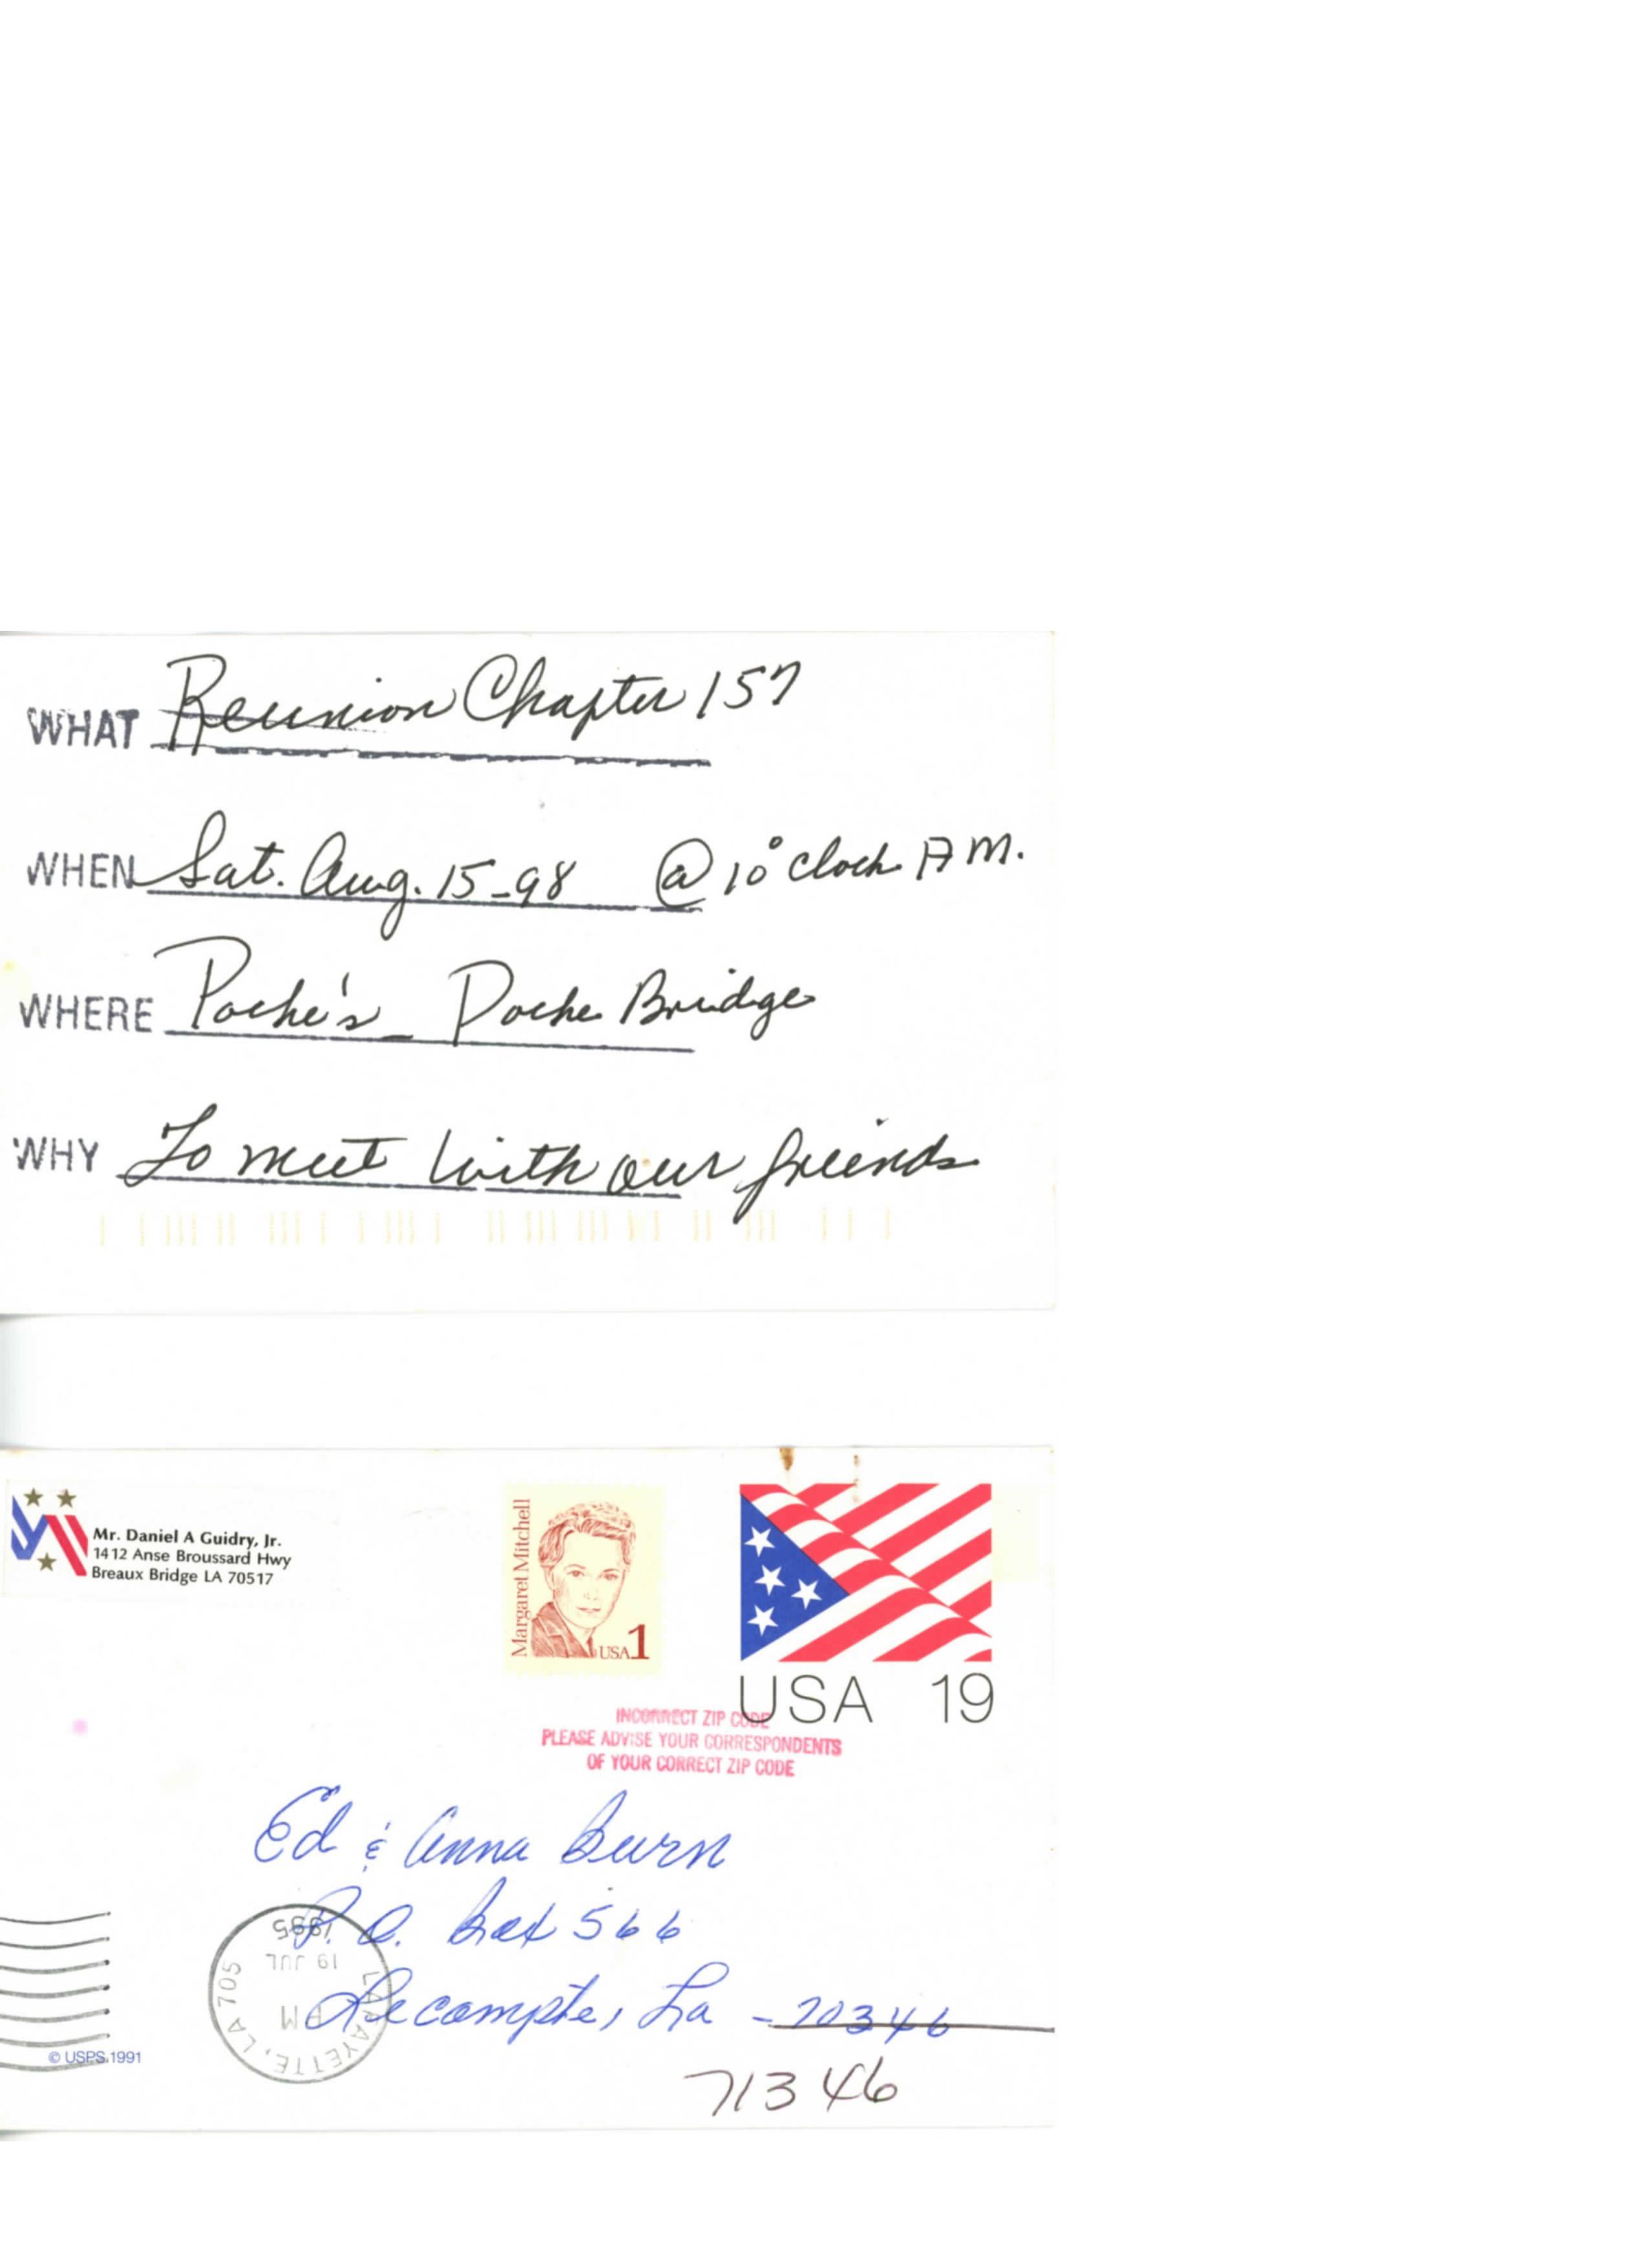 WHAT Reunion Chapter 157
WHEN Sat. Aug. 15-98 @ 10 o'clock A M.
WHERE Poche's - Poche Bridge
WHY To meet with our friends
Mr. Daniel A Guidry, Jr.
1412 Anse Broussard Hwy
Breaux Bridge LA 70517
Margaret Mitchell
USA 1
USA 19
INCORRECT ZIP CODE
PLEASE ADVISE YOUR CORRESPONDENTS
OF YOUR CORRECT ZIP CODE
Ed & Anna Burn
P.O. Box 566
Lecompte, La - 70346
71346
LAFAYETTE, LA 705
PM
19 JUL
© USPS 1991